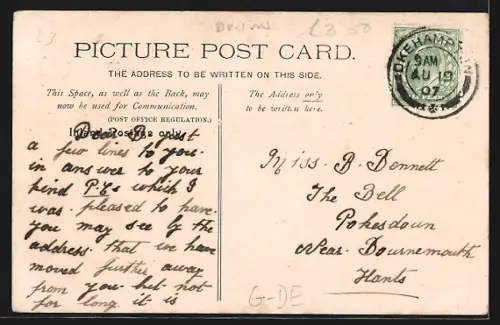 DEVON
£3.50
63
PICTURE POST CARD.
THE ADDRESS TO BE WRITTEN ON THIS SIDE.
This Space, as well as the Back, may
now be used for Communication.
(POST OFFICE REGULATION.)
Inland Postage only
The Address only
to be written here.
OKEHAMPTON
9AM
AU 19
07
Dear B just
a few lines to you
in answer to your
kind P.Cs which I
was pleased to have
you may see by the
address that we have
moved further away
from you but not
for long it is
Miss. B. Dennett
The Bell
Pokesdown
Near Bournemouth
Hants
G-DE